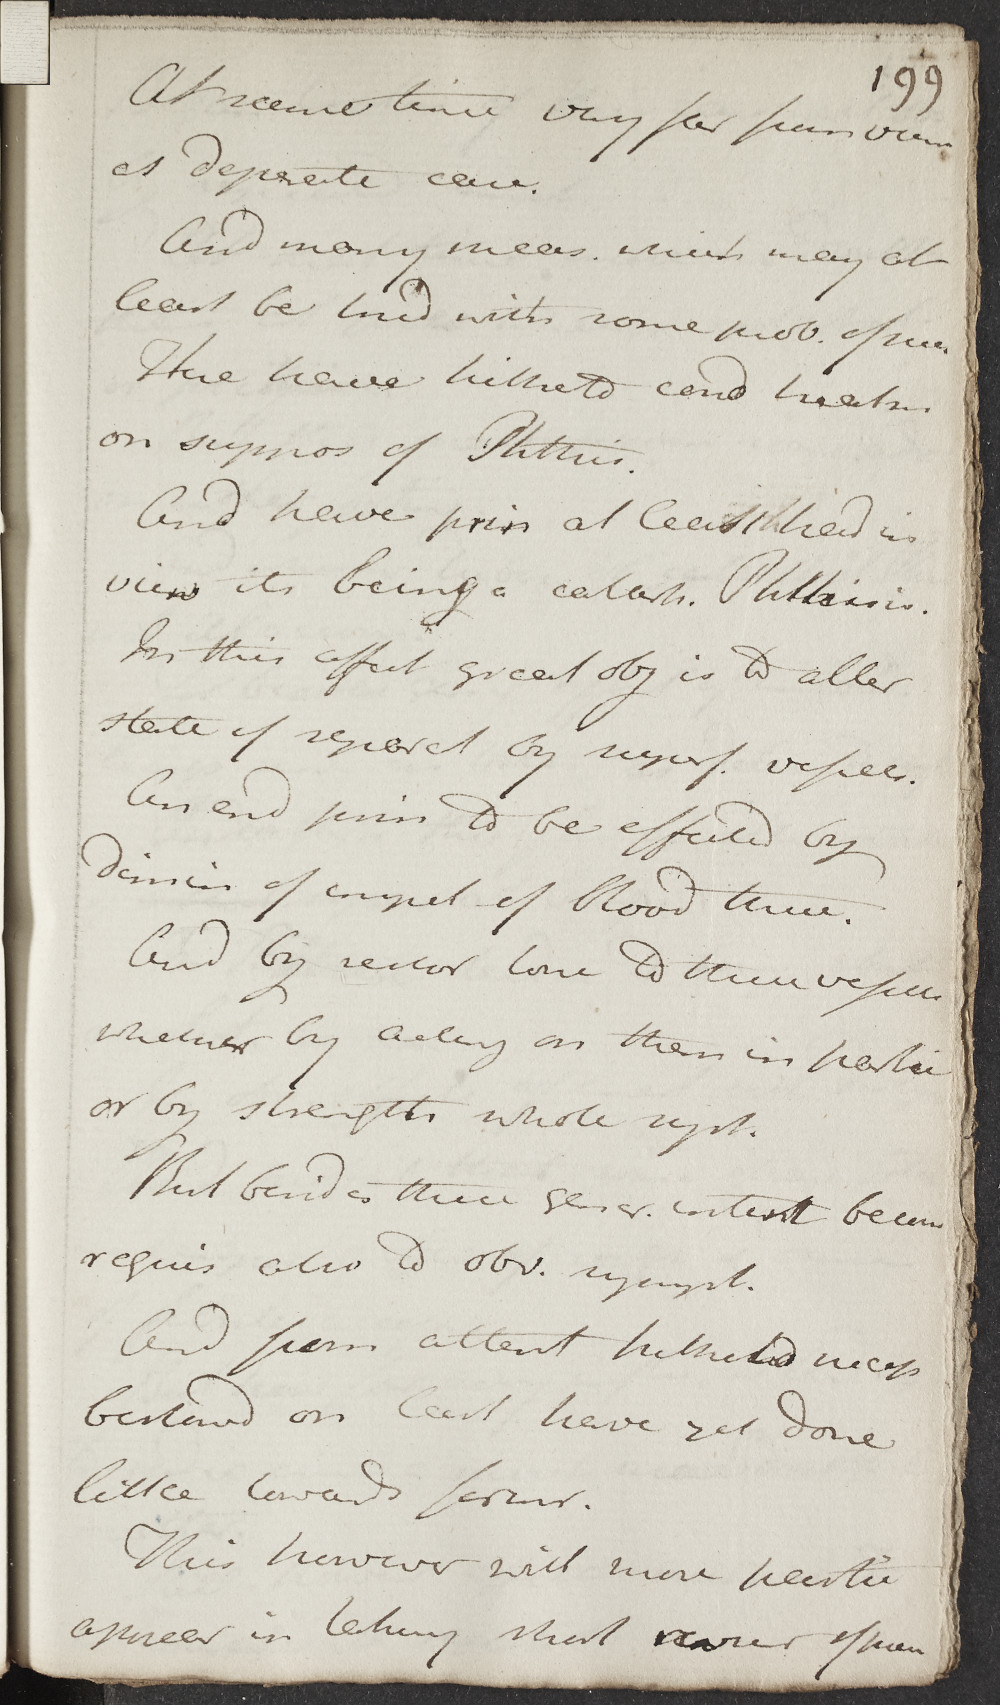 199
At same time very far from view
as desperate case.
And many meas. which may at
least be tried with some prob. of suc
We have hitherto cond treatm
on suppos of Phthis.
And have prin at least had in
view its being a catarh. Phthisis.
In this affect great obj is to alter
state of separat by superf. vessels.
An end prin to be effected by
dimin of impet of Blood there.
And by restor tone to these vessels
whether by acting on them in partic
or by strengths whole syst.
But besides these gener. intent becom
requis also to obv. sympt.
And from attent hitherto necess
bestowd on last have yet done
little towards former.
This however will more partic
appear in taking short review of prac